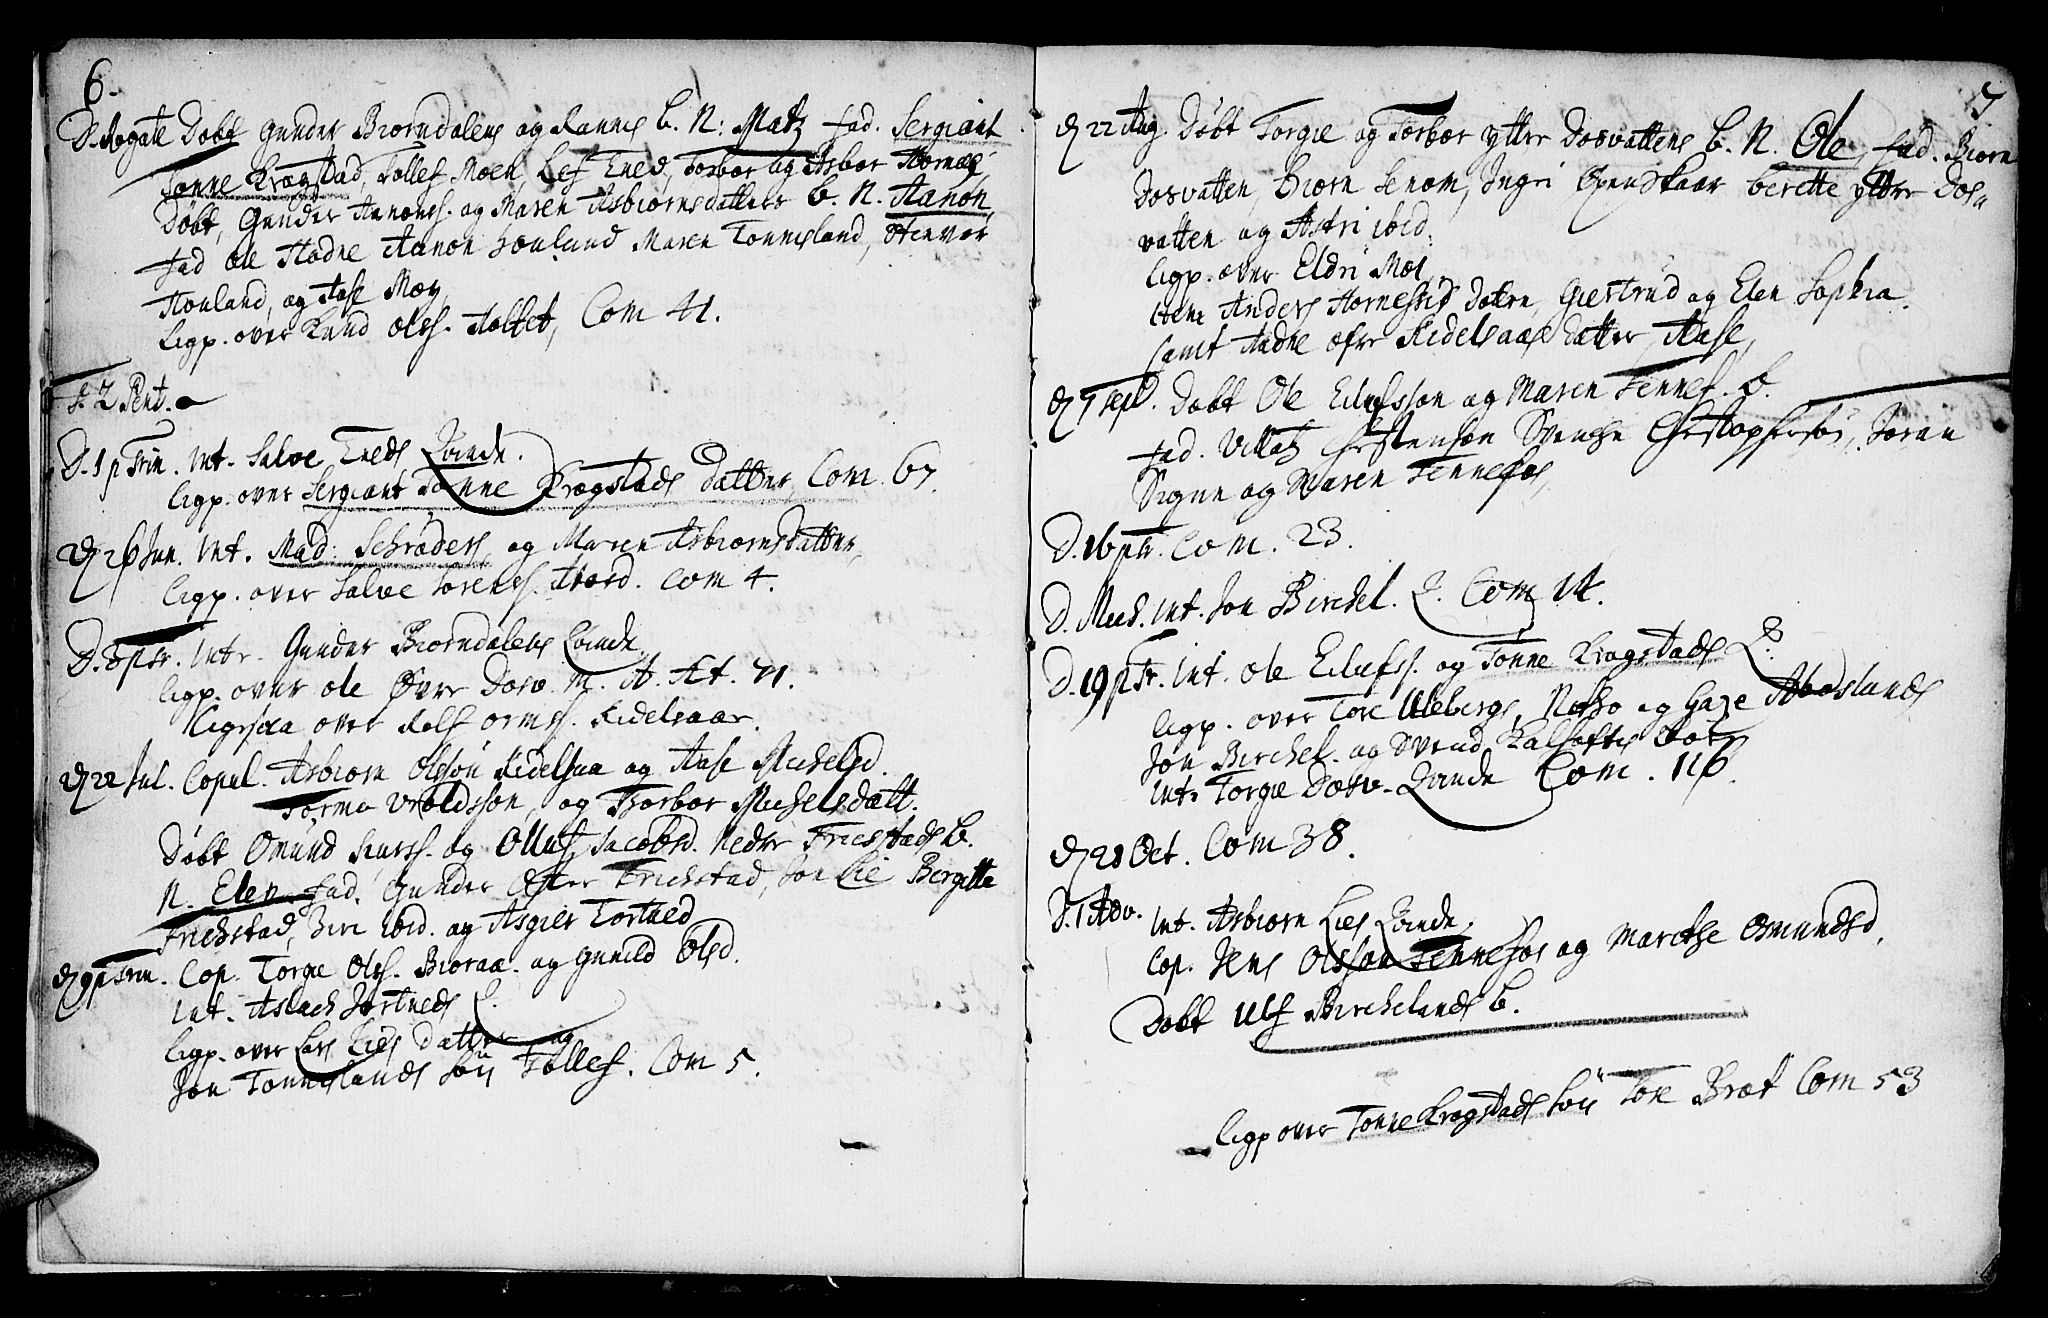 6.
D. Rogate Døbt Gunder Biørndalens og Rannes b. N: Matz fad. Sergiant
Tønne Kragstad, Tollef Moen, Lef Eued, Torbor og Asbor Hornæs,
Døbt, Gunder Aanons. og Maren Asbiørnsdatters b. N. Aanon,
fad Ole Aadne Aanon Honland Maren Tonnesland, Stenvor
Honland, og Aase Moy,
Ligp. over Knud Olss. Holtet, Com 41.
F. 2 Pent.
D. 1 p Trin. Int. Salve Eueds Qvinde.
Ligp. over Sergiant Tønne Kragstads datter, Com 67.
D 26 Jun. Int. Mad: Schrøders, og Maren Asbiørnsdatter,
Ligp. over Salve Sørens. Com 4.
D. 5 p Tr. Intr. Gunder Biørndalens Qvinde,
Ligp. over Ole Øvre Dosv. M. A. Æt. 71.
Ligp over Rolf Orms. Kidelsaar.
D 22 Jul. Copul. Asbiørn Olssøn Kidelsaa og Aase Michelsd.
Tormo Vroldsson, og Torbor Michelsdatt.
Døbt Omund og Olluf Jacobsd. Nedre Frichstads b.
N. Elen fad. Gunder Frichstad, Jon Lie Bergitte
Frichstad, Siri ibid. og Asgier Tortued
D 9 p Trin. Cop. Torgie Olss. Bioraa. og Gunild Olsd.
Int. Aslach Tortueds Q.
Ligp. over Lars Lies datter og
Jon Tonneslands Søn Tollef. Com 5.
7
D 22 Aug. Døbt Torgie og Torbor ytter Dosvattens b. N. Ole, fad. Biørn
Dosvatten, Biørn Senom, Ingri Openskaar berette yttre Dos
vatten og Astri ibid.
Ligp. over Eldri Moi,
item Anders Hornes døtre, Giertrud og Elen Sophia.
samt Aadne øfre Kidelsaas datter, Aase,
D 9 Sept. Døbt Ole Eilufssøn og Maren Tennef. b.
fad. Villatz Christensøn Svenche Christophersøn, Joran
Signe og Maren Tennefos,
D. 16 p Tr. Com. 23.
D. Mich. Int. Jon Birchel. Q. Com 14.
D. 19 p Tr. Int. Ole Eilufss. og Tønne Kragstads Q.
Ligp. over Tore Ulebergs, og Gaze Abeslands
Jon Birchel. og Svend Kalhofts
Intr Torgie Dosv. Qvinde Com. 116.
D 28 Oct. Com 38.
D. 1 Adv. Int. Asbiørn Lies Qvinde,
Cop. Jens Olsson Tennefos og Marethe Omundsd,
Døbt Ulf Birchelands b.
Ligp over Tønne Kragstads Søn Tore Bræt Com 53